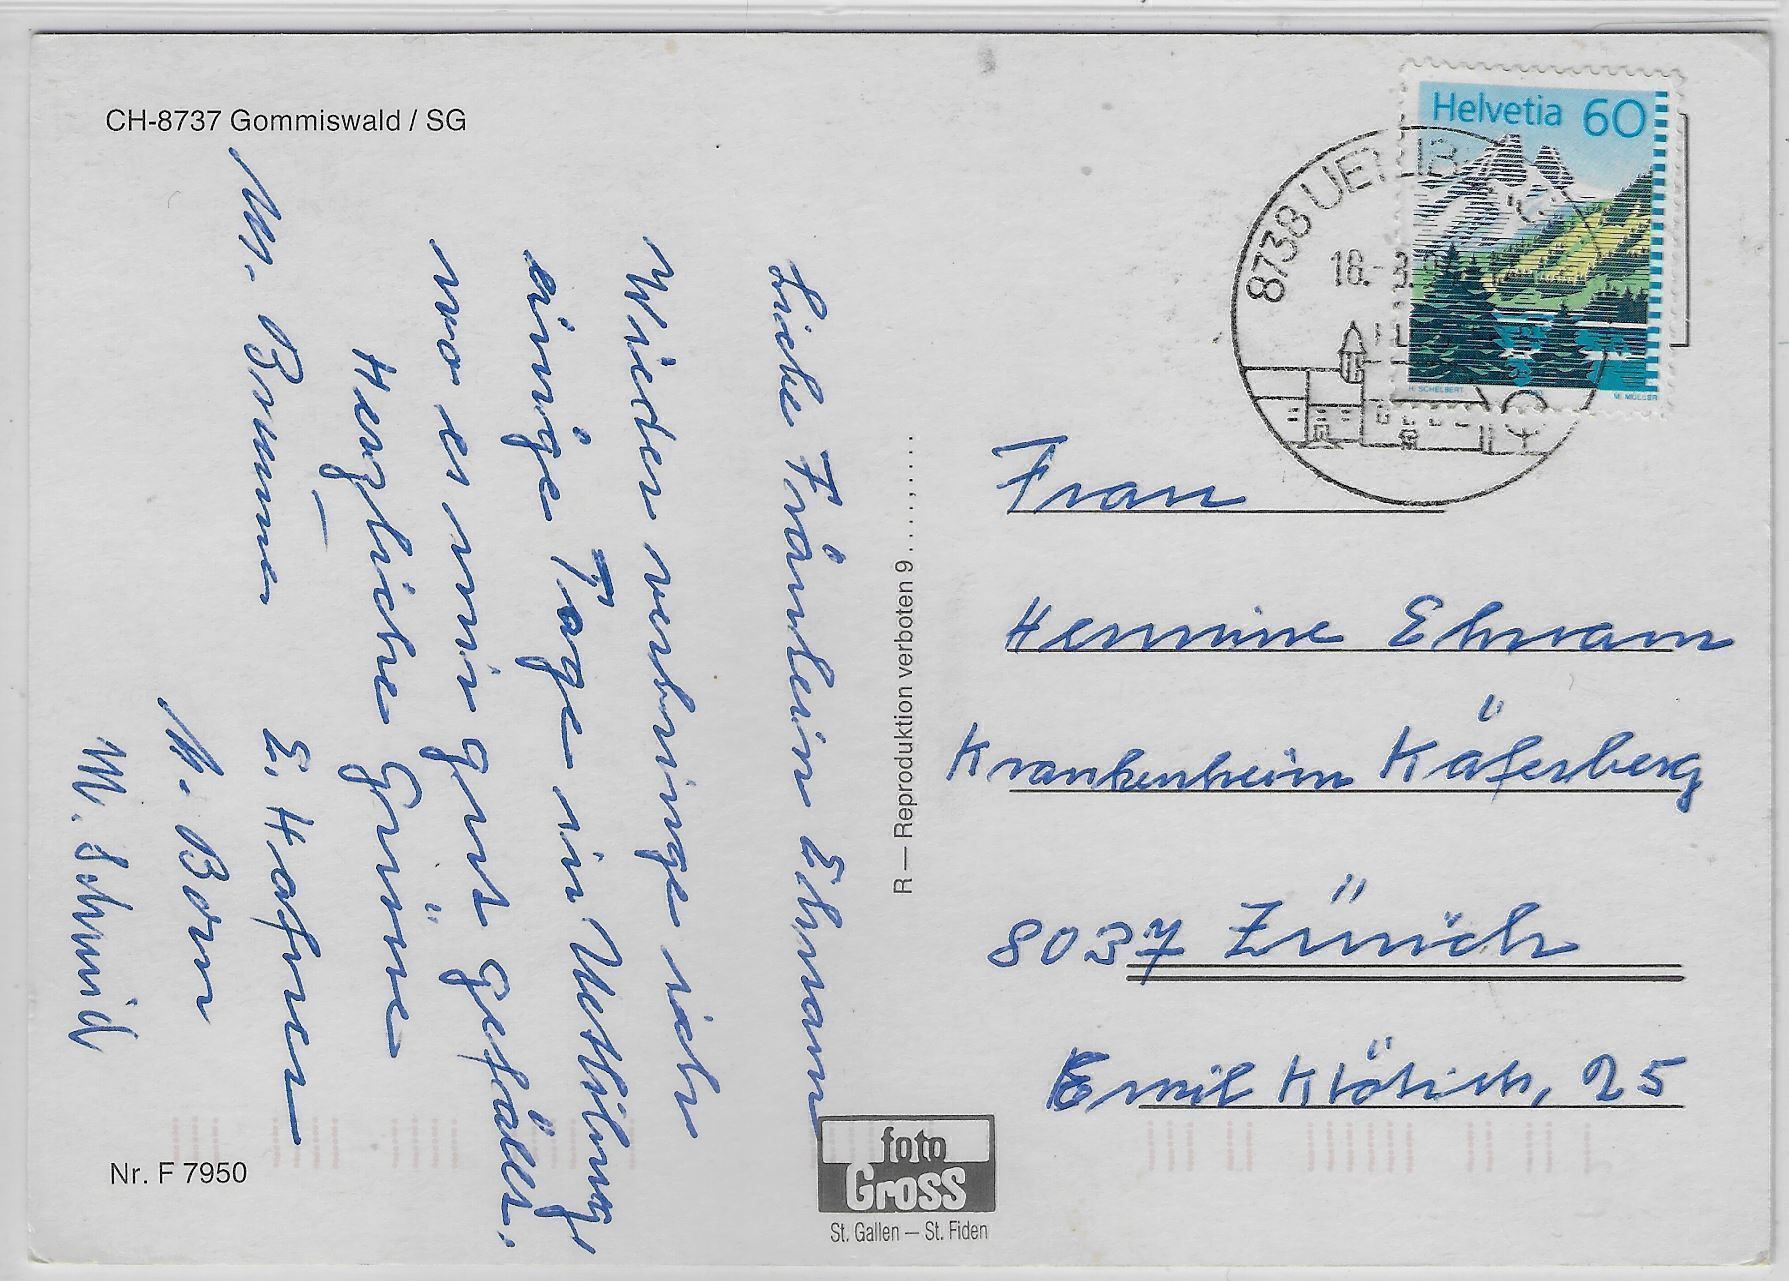 CH-8737 Gommiswald / SG
Liebe Fräulein Ehram
Wieder verbringe ich
einige Tage in Uetliburg
wo es mir gut gefällt.
Herzliche Grüsse
M. Brunner
E. Hafner
M. Born
M. Schmid
Nr. F 7950
R — Reproduktion verboten 9......,....
foto
Gross
St. Gallen — St. Fiden
Helvetia 60
H. SCHELBERT
M. MÜLLER
8738 UETLIB
18.-8.
Frau
Hermine Ehram
Krankenheim Käferberg
8037 Zürich
Emil Klötistr, 25